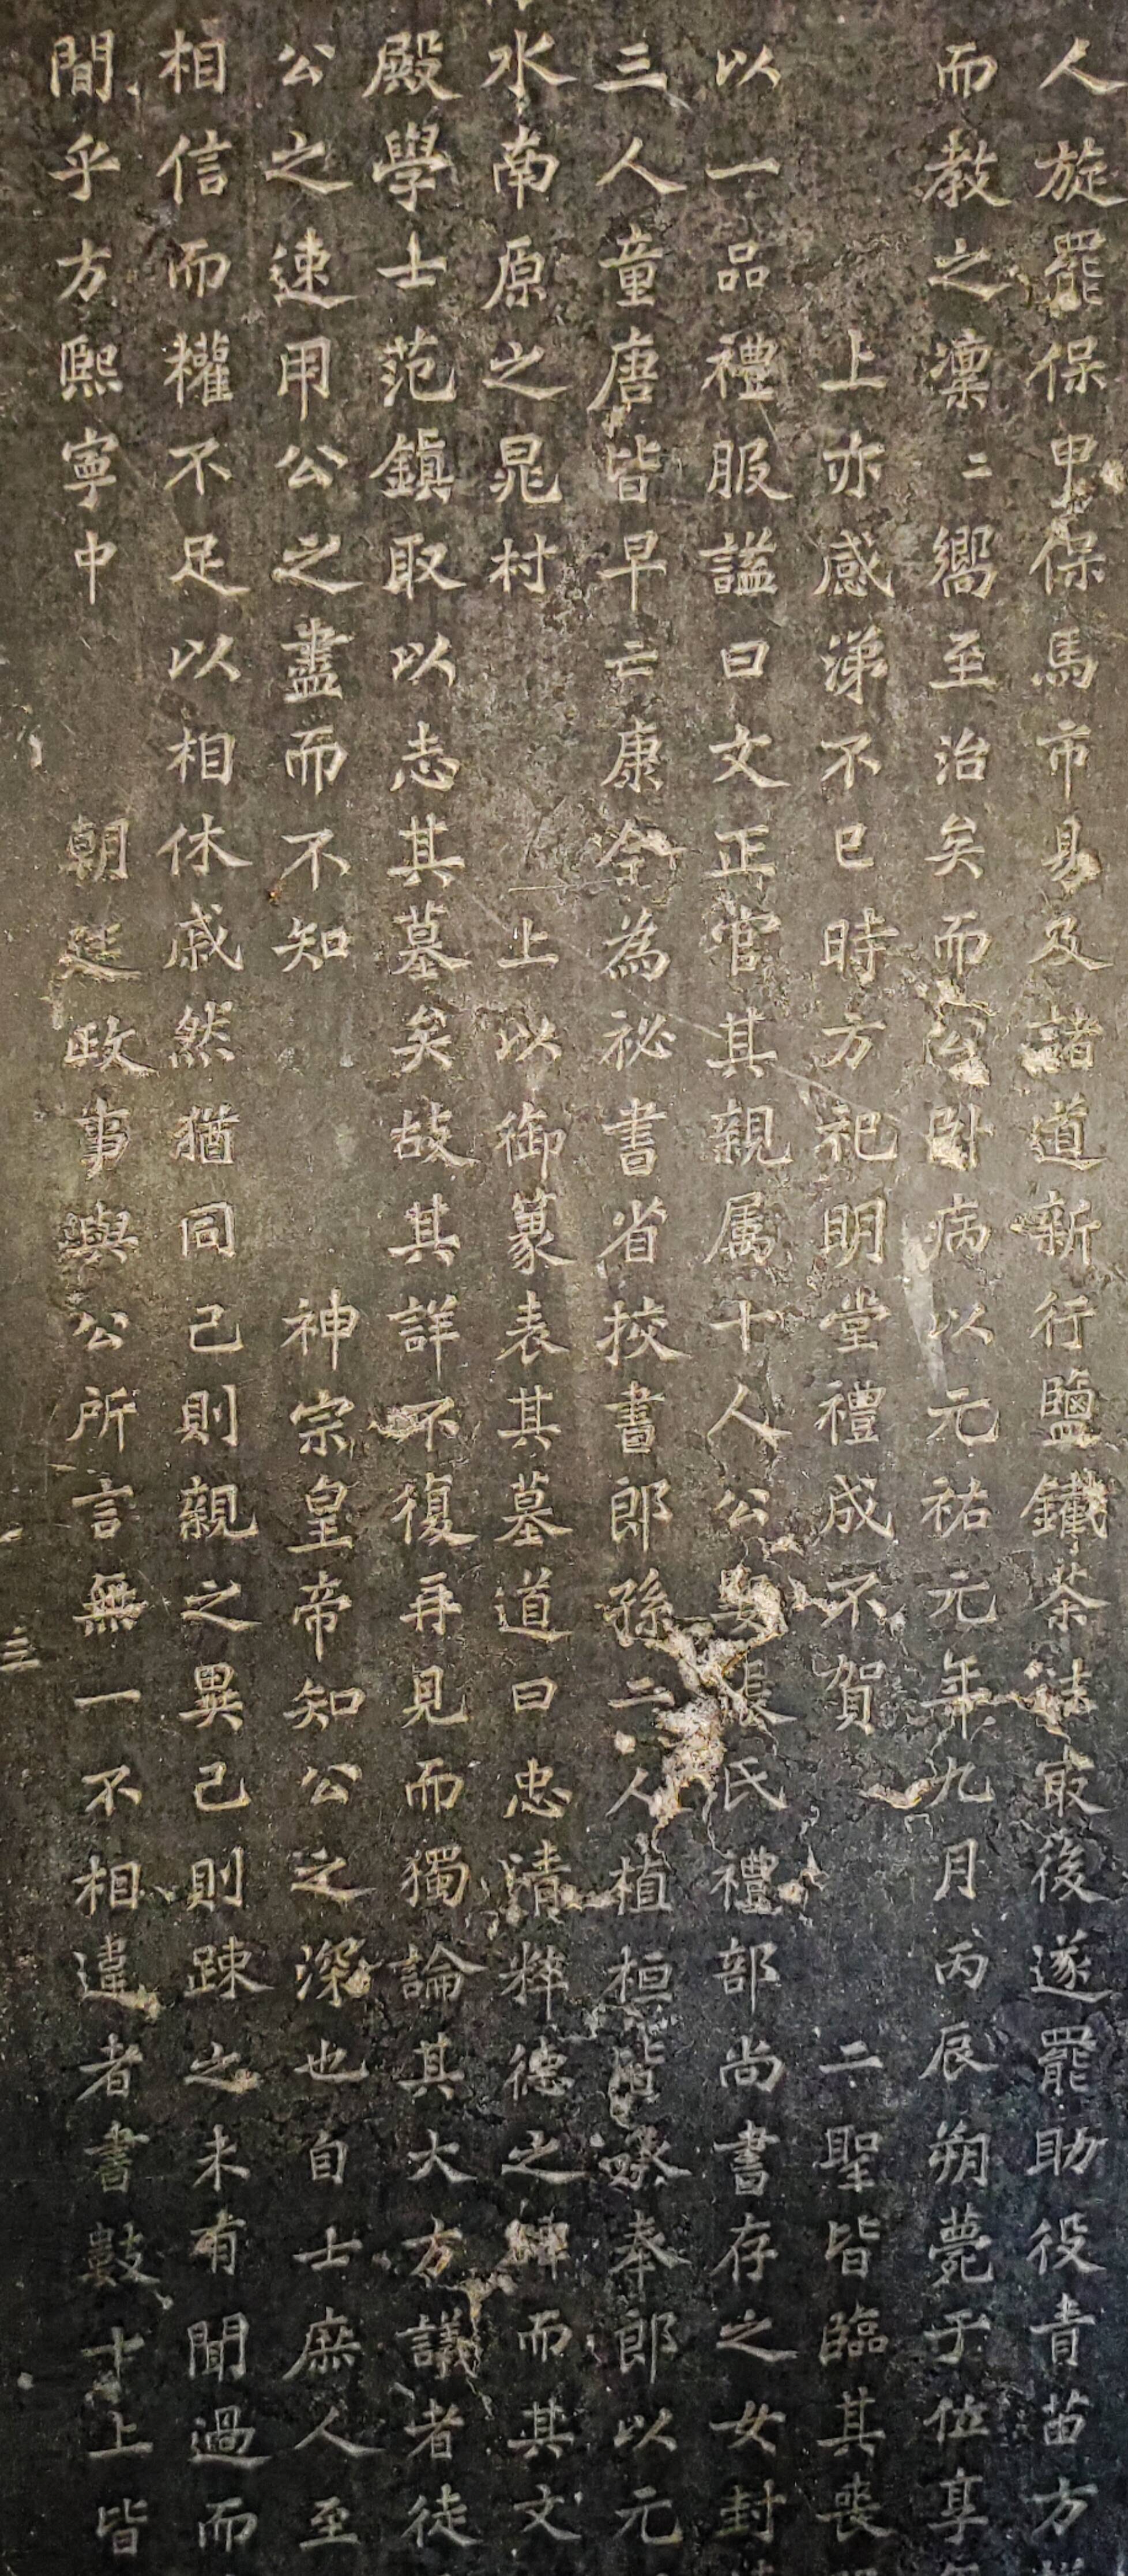 人旋罷保甲保馬市易及諸道新行鹽鐵茶法最後遂罷助役青苗方
而教之凜〻嚮至治矣而公臥病以元祐元年九月丙辰朔薨于位享
上亦感涕不已時方祀明堂禮成不賀二聖皆臨其喪
以一品禮服諡曰文正官其親屬十人公娶張氏禮部尚書存之女封
三人童唐皆早亡康今為祕書省挍書郎孫二人植桓皆承奉郎以元
水南原之晁村上以御篆表其墓道曰忠清粹德之碑而其文
殿學士范鎮取以志其墓矣故其詳不復再見而獨論其大方議者徒
公之速用公之盡而不知神宗皇帝知公之深也自士庶人至
相信而權不足以相休戚然猶同己則親之異己則踈之未有聞過而
間乎方熙寧中朝廷政事與公所言無一不相違者書數十上皆